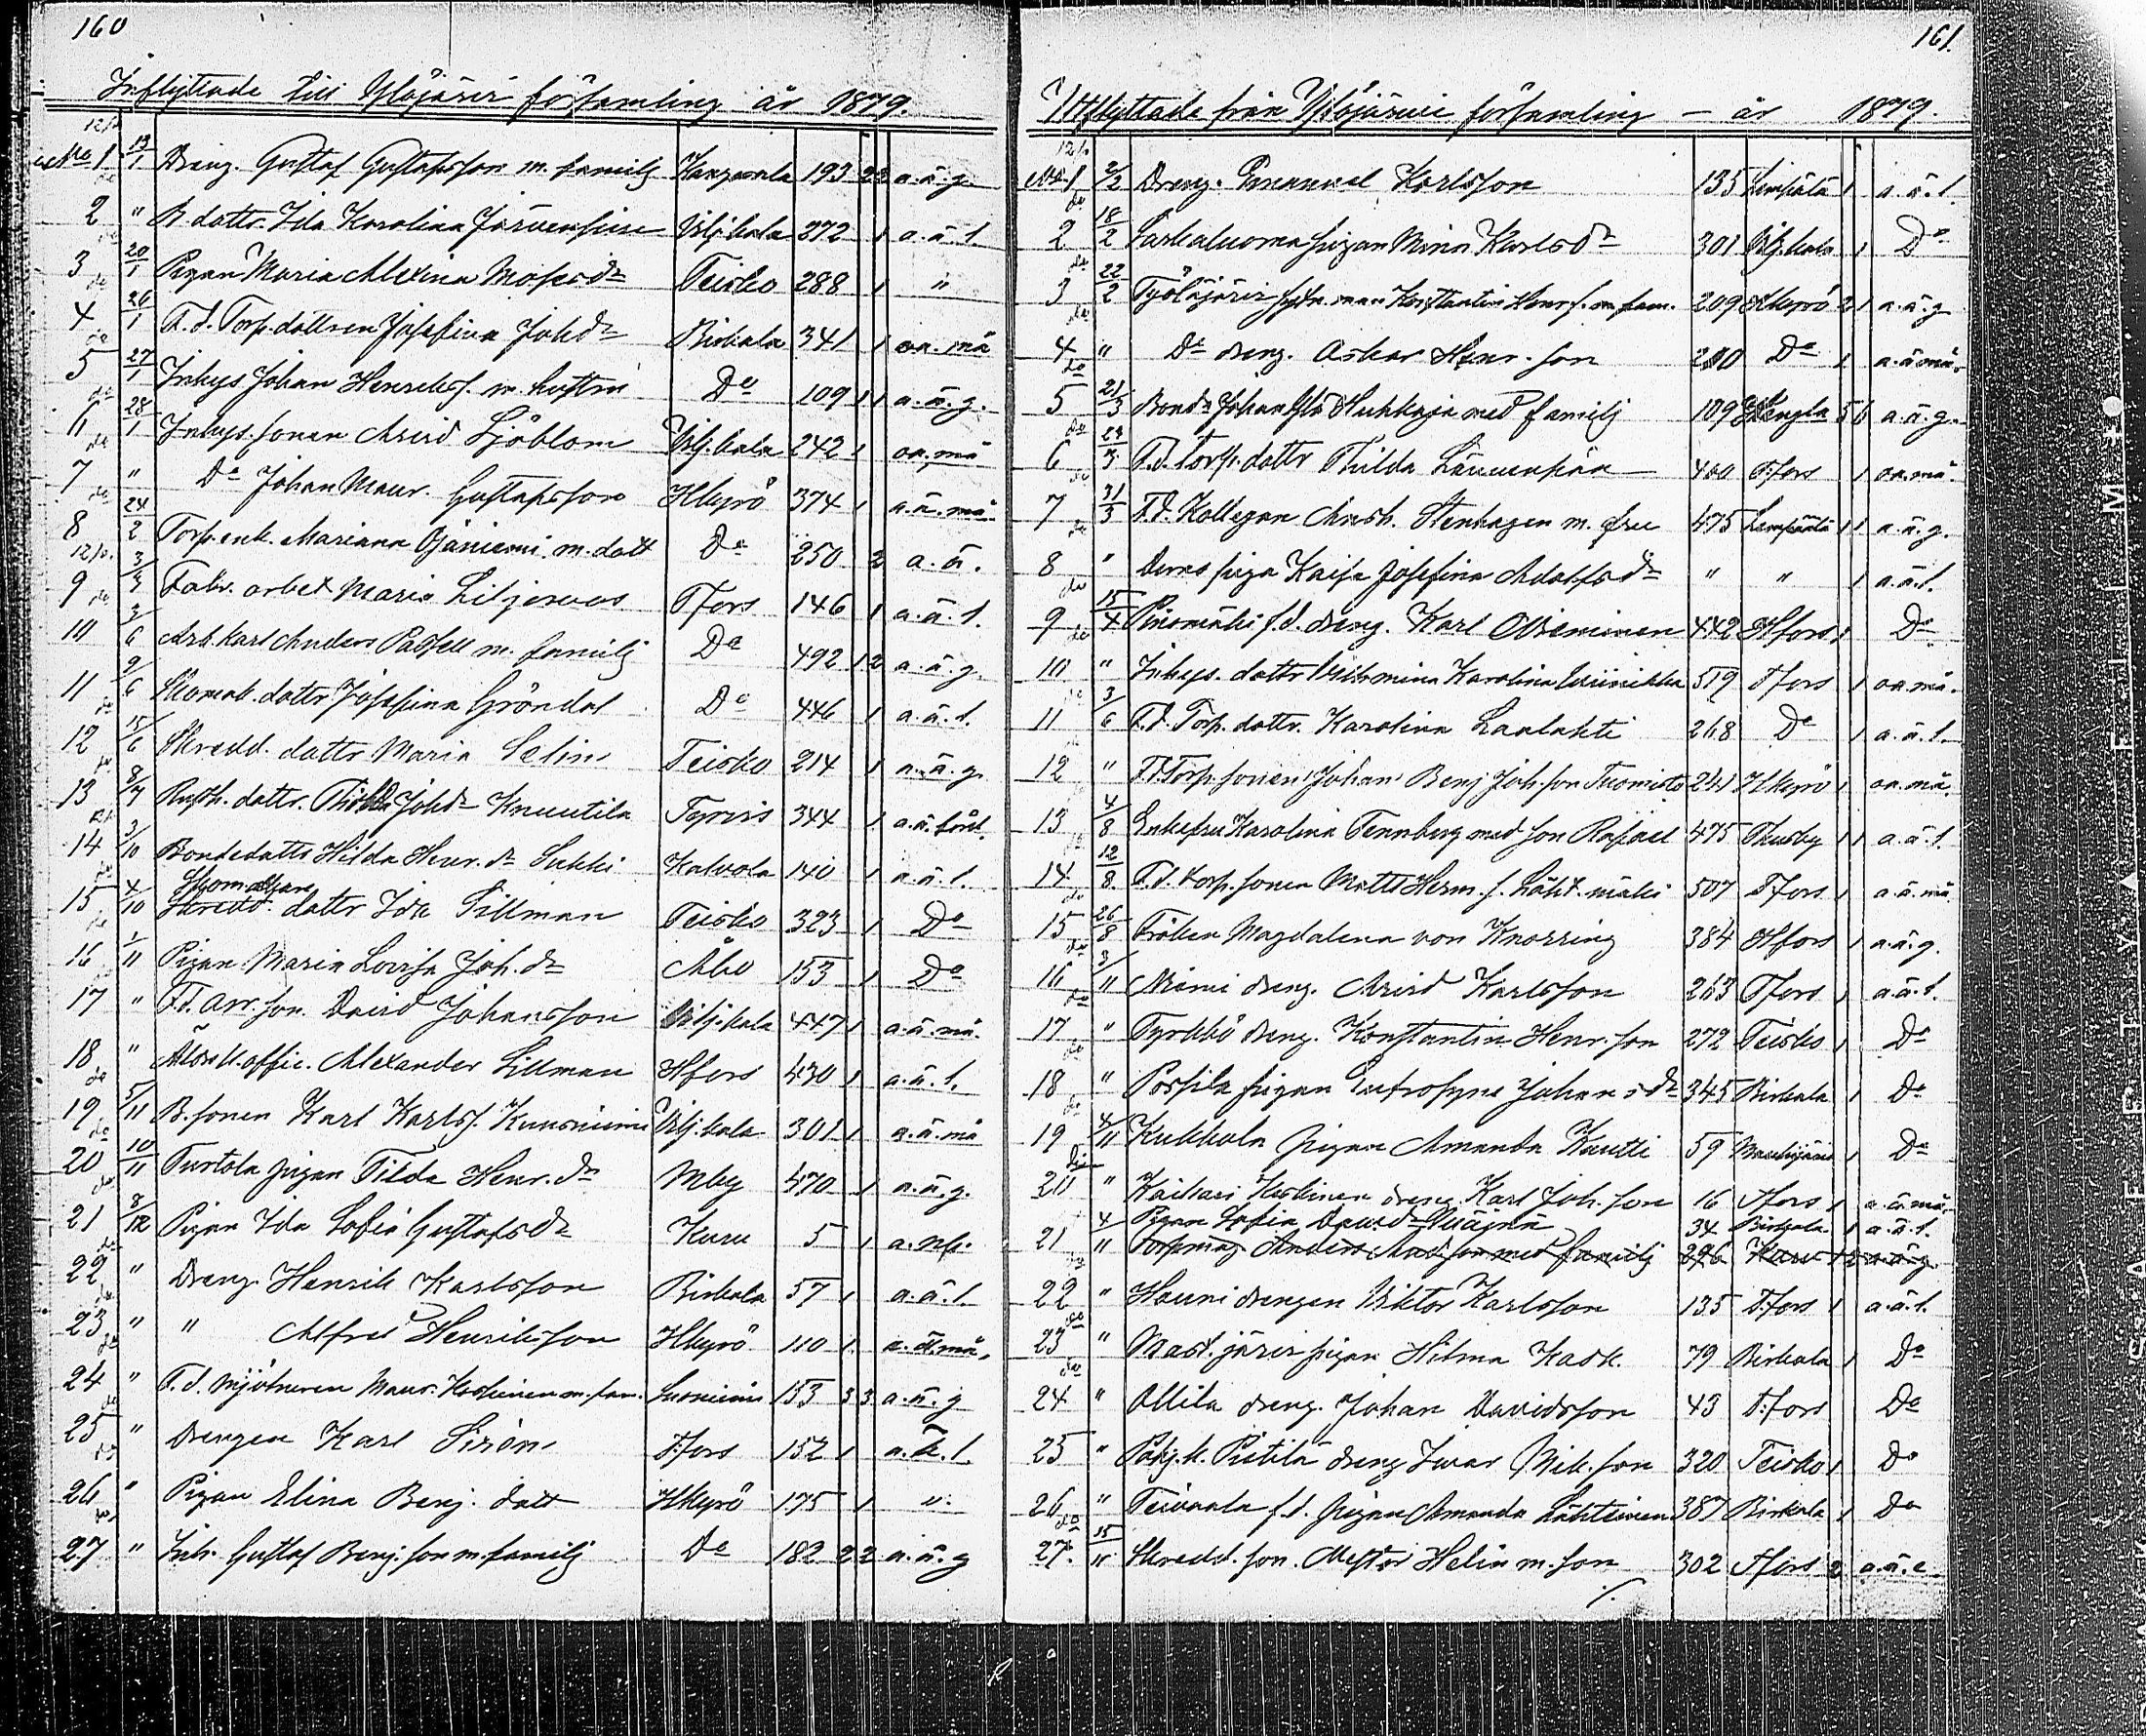 160
Inflyttade till Ylöjärvi församling år 1879.
No 1 13/1 Dreng. Gustaf Gustafsson m. familj Kangasala 193 2 2 a.ä.g.
2 " B. dottr. Ida Karolina Järvensivu Vilj.kala 272 1 a.ä.l.
3 20/1 Pigan Maria Alexina Mosesdr Teisko 288 1 "
4 26/1 F.d. Torp. dottren Josefina Johdr Birkala 341 1 oa.må
5 27/1 Inhys Johan Henrikss. m. hustru Do 109 1 1 a.ä.g.
6 28/1 Inhys. sonen Arvid Sjöblom Vilj.kala 242 1 oa.må
7 " Do Johan Maur. Gustafsson HKyrö 374 1 a.ä.må.
8 24/2 Torp.enk. Mariana Ojaniemi m. dott Do 250 2 a.ä.
9 3/4 Fabr. arbet Maria Liljeroos Tfors 146 1 a.ä.l.
10 3/6 Arb. Karl Anders m. familj Do 492 1 2 a.ä.g.
11 9/6 Skomak. dottr Josefina Gröndal Do 446 1 a.ä.l.
12 15/6 Skredd. dottr Maria Selin Teisko 214 1 a.ä.g.
13 8/7 Rusth. dottr. Johdr Knuutila Tyrvis 344 1 a.ä.
14 3/10 Bondedottr Hilda Henr.dr Sukki Kalvola 140 1 a.ä.l.
15 4/10 Skomakare dottr Ida Sillman Teisko 323 1 Do
16 1/11 Pigan Maria Lovisa Joh.dr Åbo 153 1 Do
17 " F.d. arr. son. David Johansson Vilj.kala 447 1 a.ä.må.
18 " Alexander Sillman Hfors 430 1 a.ä.l.
19 5/11 B. sonen Karl Karlss. Kuusniemi Vilj.kala 301 1 a.ä.må
20 10/11 Turtola pigan Tilda Henr.dr Mby 470 1 a.ä.g.
21 8/12 Pigan Ida Sofia Gustafsdr Kuru 5 1 a.np.
22 " Dreng Henrik Karlsson Birkala 57 1 a.ä.l.
23 " " Alfred Henriksson HKyrö 110 1 a.ä.må.
24 " F.d. mjölnaren Maur. Koskinen m. fam. Suoniemi 153 3 3 a.ä.g
25 " Drengen Karl Sirén Tfors 152 1 a.ä.l.
26 " Pigan Elina Benj. dott HKyrö 175 1 "
27 " Inh. Gustaf Benj. son m. familj Do 182 2 2 a.ä.g
161.
Utflyttade från Ylöjärvi församling – år 1879.
No 1 2/2 Dreng. Emanuel Karlsson 135 Lempälä 1 a.ä.l.
2 18/2 pigan Mina Karlsdr 301 Vilj.kala 1 Do
3 22/2 Työläjärvi Konstantin Henrs. m. fam. 209 HKyrö 2 1 a.ä.g
4 " Do dreng. Oskar Henr. son 210 Do 1 a.ä.må.
5 21/3 Bond. Johan Huhkaja med familj 109 5 6 a.ä.g.
6 23/3 F.d. Torp. dottr Thilda Länvenpää 400 Tfors 1 oa.må.
7 31/3 F.d. Kollegan Stenhagen m. fru 475 Lempäälä 1 1 a.ä.g.
8 " Deras piga Kaisa Josefina Adolfsdr " " 1 a.ä.l.
9 15/4 Pinomäki f.d. dreng. Karl 442 Hfors 1 Do
10 " Inhys. dottr Vilhelmina Karolina Viinikka 519 Tfors 1 oa.må.
11 3/6 F.d. Torp. dottr. Karolina Laalahti 268 Do 1 a.ä.l.
12 " F.d. Torp. sonen Johan Benj. Joh.son Tuomisto 241 HKyrö 1 oa.må.
13 4/8 Enkefru Karolina Tennberg med son Rafael 475 Thusby 1 1 a.ä.l.
14 12/8 F.d. torp. sonen Matts Herm.s. 507 Tfors 1 a.ä.må.
15 26/8 Fröken Magdalena von Knorring 384 Hfors 1 a.ä.g.
16 3/11 Niemi dreng. Arvid Karlsson 263 Tfors 1 a.ä.l.
17 " Tyrkkö dreng. Konstantin Henr. son 272 Teisko 1 Do
18 " Porsila pigan Eufrosyne Johansdr 345 Birkala 1 Do
19 4/11 Kukkola pigan Amanda Kautti 59 Mouhijärvi 1 Do
20 " Kaikari Koskinen dreng Karl Joh. son 16 Tfors 1 a.ä.må.
Pigan Sofia Davidsdr 34 Birkala 1 a.ä.l.
21 4/11 Torpmag. Anders And.son med familj 296 Kuru 1 2 a.ä.g
22 " Hauni drengen Viktor Karlsson 135 T.fors 1 a.ä.l.
23 " Mast.järvi pigan Hilma Kask. 79 Birkala 1 Do
24 " Ollila dreng. Johan Davidsson 43 T.fors 1 Do
25 " Pohj.k. Pietilä dreng Ivar Mik. son 320 Teisko 1 Do
26 " Teivaala f.d. pigan Amanda Lähteinen 387 Birkala 1 Do
27. 15/11 Skredd. son. Nestor Helin m. son 302 Tfors 2 a.ä.e.